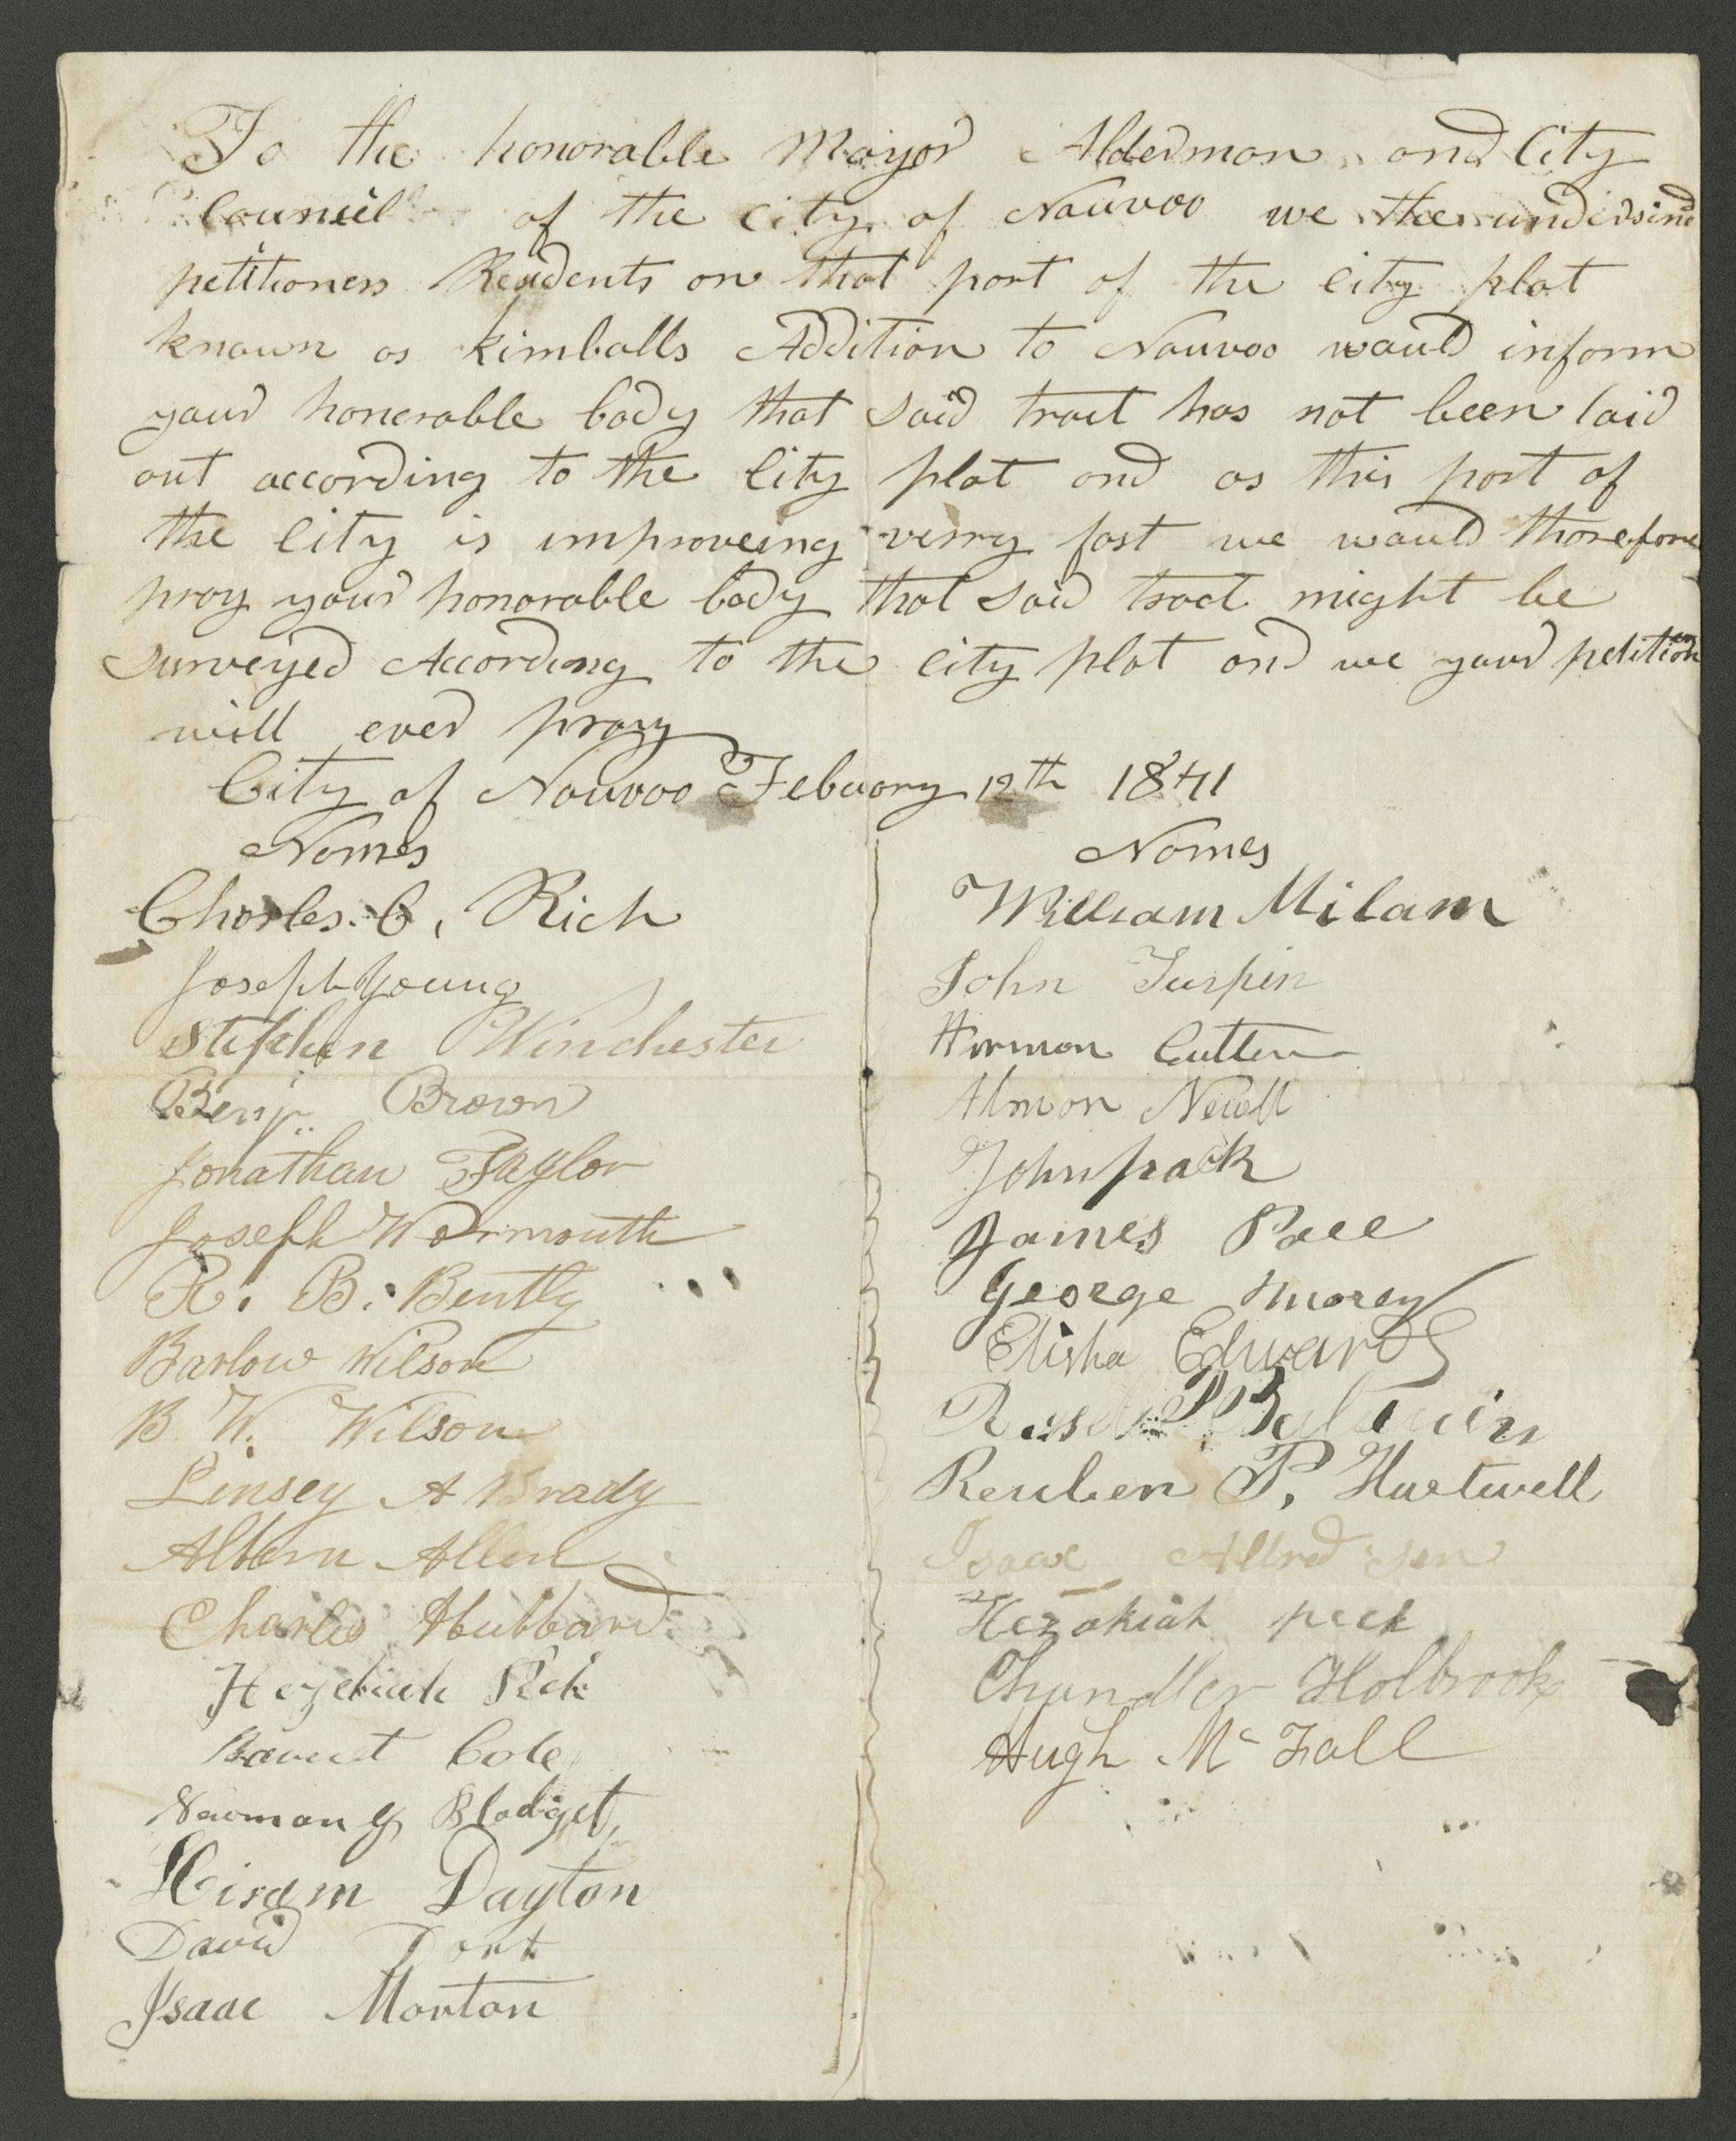 To the honorable Mayor Alderman and City
Councel of the City of Nauvoo we the undersind
petitioners Residents on that part of the City plat
known as Kimballs Addition to Nauvoo would inform
your honerable body that said tract has not been laid
out according to the City plat and as this part of
the City is improveing verry fast we would therefore
pray your honorable body that said tract might be
surveyed According to the City plat and we your petition
will ever pray
City of Nauvoo Febuary 12th 1841
Names
Charles. C, Rich
Joseph Young
Stephen Winchester
Benj. Brown
Jonathan Taylor
Joseph Wormouth
R. B. Bently
Barlow Wilson
B. W. Wilson
Linsey A Brady
Albern Allen
Charles Hubbard
Hezekiah Peck
Barnet Cole
Newman G Blodget,
Hiram Dayton
David Dort
Isaac Morton
Names
William Milam
John Turpin
Harmon Cutler
Almon Newell
John pack
James Pace
George Morey
Elisha Edwards
Baldwin
Reuben P. Hartwell
Isaac Allred Sen
Hezakiah peck
Chandler Holbrook
Hugh Mc Fall